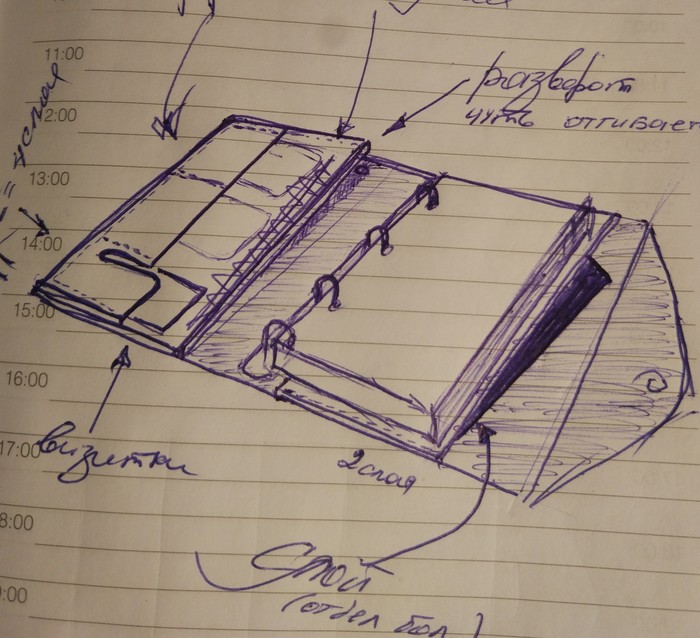 11:00
12:00
разворот
чуть отгибает
слоя
13:00
14:00
15:00
16:00
17:00
визитки
2 слоя
8:00
Слой
(отдел бол
:00